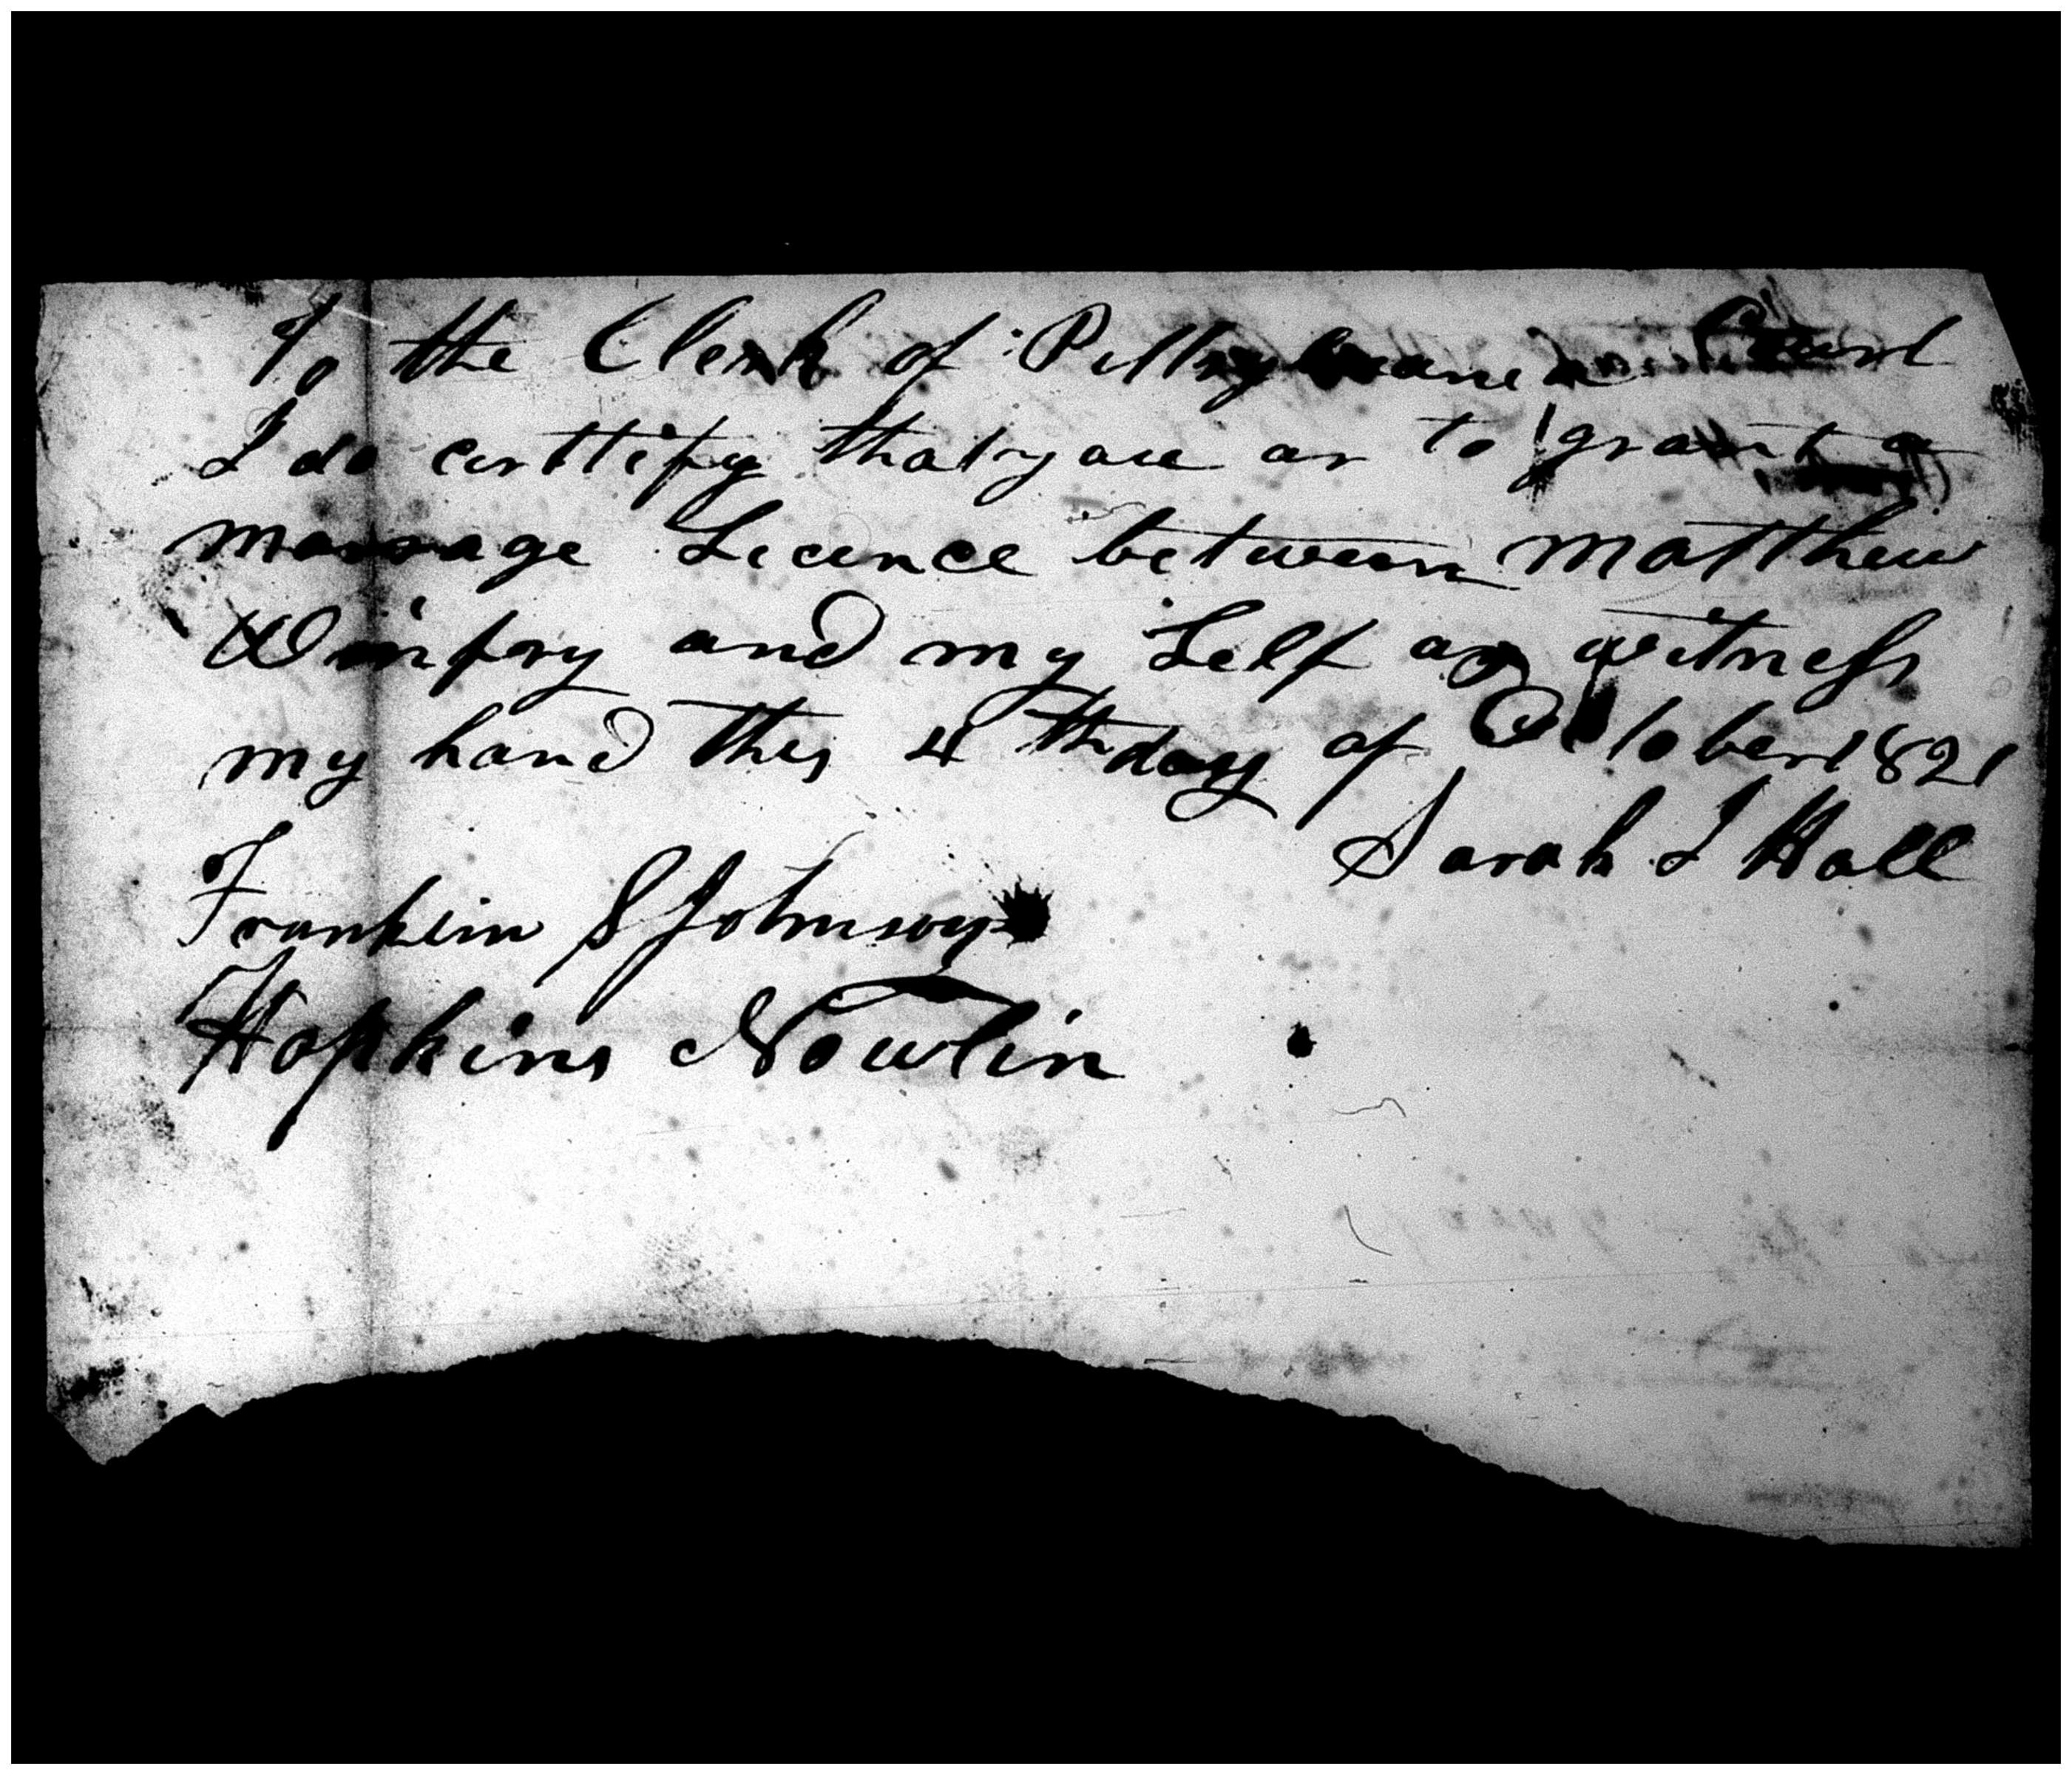 To the Clerk of Pittsylvania Court
I do certtify that you ar to grant a
marage Licence between Matthew
Winfrey and my Self as witness
my hand this 4th day of October 1821
Sarah I Hall
Franklin S Johnson
Hopkins Nowlin